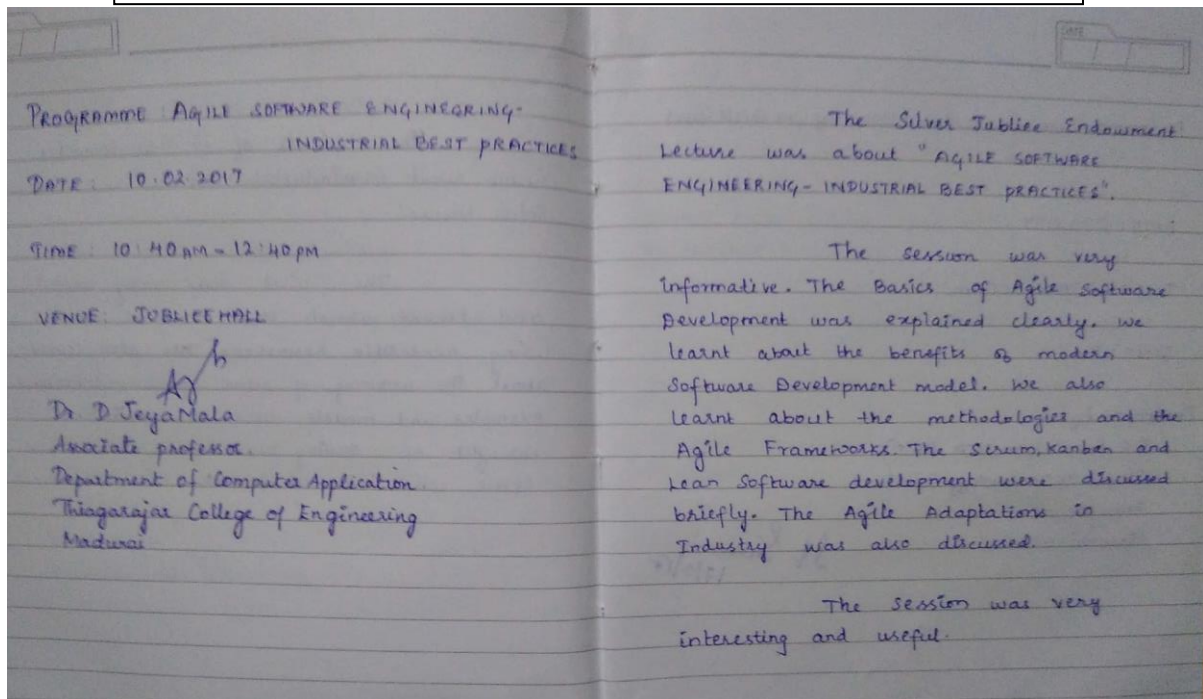 PROGRAMME : AGILE SOFTWARE ENGINEERING-
INDUSTRIAL BEST PRACTICES
DATE : 10.02.2017
TIME : 10:40 AM - 12:40 PM
VENUE : JUBLICE HALL
Dr. D. JeyaMala
Associate professor.
Department of Computer Application
Thiagarajar College of Engineering
Madurai
DATE
The Silver Jubliee Endowment
Lecture was about "AGILE SOFTWARE
ENGINEERING- INDUSTRIAL BEST PRACTICES".
The session was very
informative. The Basics of Agile Software
Development was explained clearly. We
learnt about the benefits of modern
Software Development model. We also
learnt about the methodologies and the
Agile Frameworks. The Scrum, Kanban and
Lean Software development were discussed
briefly. The Agile Adaptations in
Industry was also discussed.
The session was very
interesting and useful.